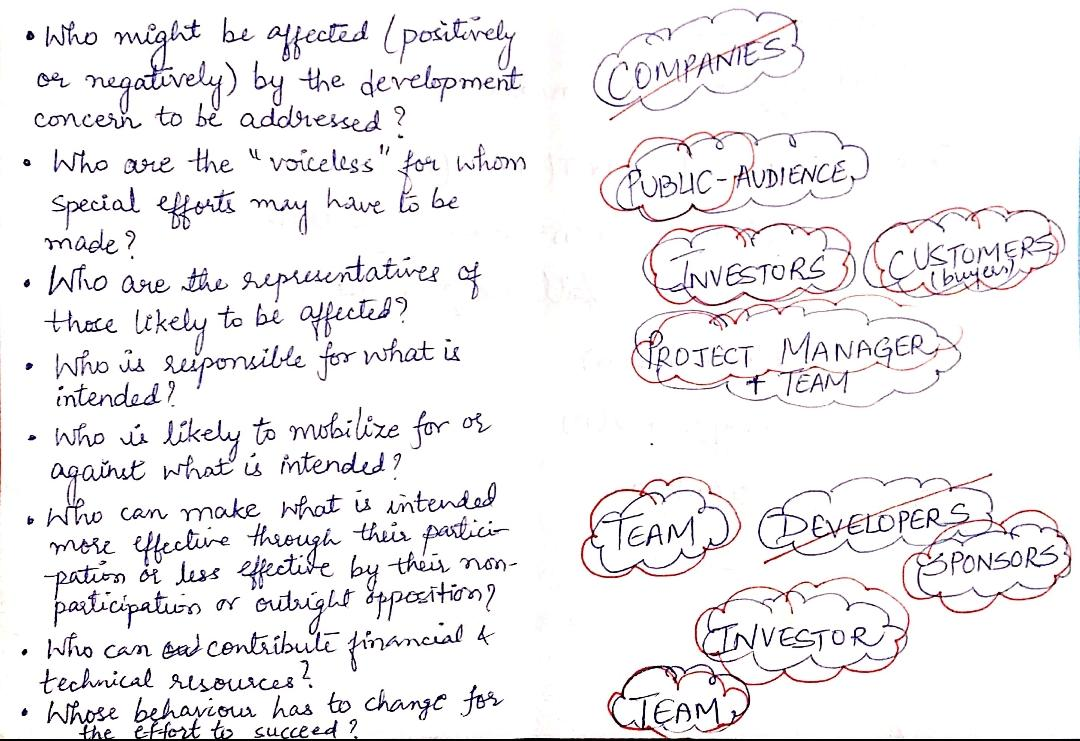 • Who might be affected (positively
or negatively) by the development
concern to be addressed?
• Who are the "voiceless" for whom
special efforts may have to be
made?
• Who are the representatives of
those likely to be affected?
• Who is responsible for what is
intended?
• Who is likely to mobilize for or
against what is intended?
• Who can make what is intended
more effective through their partici-
-pation or less effective by their non-
participation or outright opposition?
• Who can contribute financial &
technical resources?
• Whose behaviour has to change for
the effort to succeed?
COMPANIES
PUBLIC-AUDIENCE
INVESTORS
CUSTOMERS
(buyers)
PROJECT MANAGER
+ TEAM
TEAM
DEVELOPERS
SPONSORS
INVESTOR
TEAM